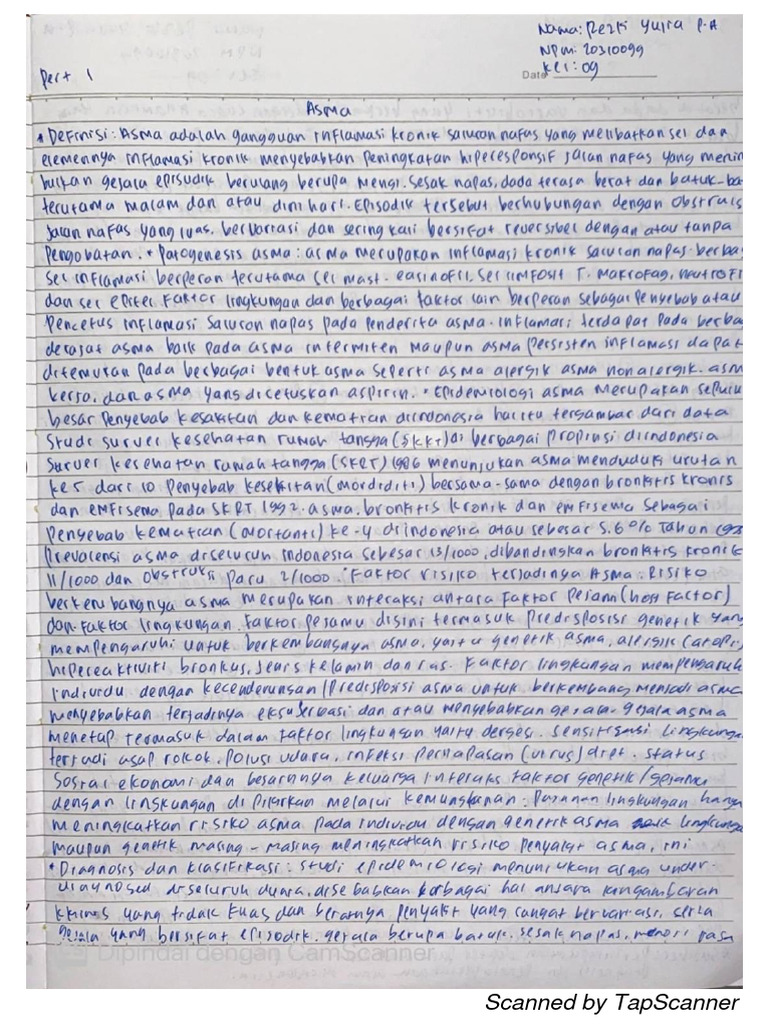 Nama: Rezki Yulra P.A
NPM: 20310099
Kel: 09
Date
Pert 1
Asma
* Definisi: Asma adalah gangguan inflamasi kronik saluran nafas yang melibatkan sel dan
elemennya inflamasi kronik menyebabkan peningkatan hiperesponsif jalan nafas yang menim
bulkan gejala episodik berulang berupa mengi. sesak napas, dada terasa berat dan batuk-ba
terutama malam dan atau dini hari. Episodik tersebut berhubungan dengan obstruks
jalan nafas yang luas, bervariasi dan seringkali bersifat reversibel dengan atau tanpa
Pengobatan. * Patogenesis asma: asma merupakan inflamasi kronik saluran napas. berbag
sel inflamasi berperan terutama sel mast. easinofil, sel limfosit T. Makrofag, neutrofi
dan sel epitel Faktor lingkungan dan berbagai faktor lain berperan sebagai penyebab atau
Pencetus inflamasi saluran napas pada penderita asma. Inflamasi terdapat pada berbag
derajat asma baik pada asma intermiten maupun asma persisten inflamasi dapat
ditemukan pada berbagai bentuk asma seperti asma alergik asma nonalergik. asm
kerja, dan asma yang dicetuskan aspirin. * Epidemiologi asma merupakan sepulu
besar penyebab kesakitan dan kematian diindonesia hal itu tergambar dari data
Studi survei kesehatan rumah tangga (SKRT) di berbagai propinsi diindonesia
Survei kesehatan rumah tangga (SKRT) 1986 menunjukan asma menduduki urutan
ke 5 dari 10 penyebab kesakitan (mordiditi) bersama-sama dengan bronkitis kronis
dan emfisema pada SKRT 1992. asma. bronkitis kronik dan emfisema sebagai
Penyebab kematian (mortaliti) ke-4 diindonesia atau sebesar 5.6% Tahun
Prevalensi asma diseluruh Indonesia sebesar 13/1000, dibandingkan bronkitis kronik
11/1000 dan obstruksi paru 2/1000. * Faktor risiko terjadinya Asma: Risiko
berkembangnya asma merupakan interaksi antara Faktor pejamu (host factor)
dan faktor lingkungan. Faktor pejamu disini termasuk predisposisi genetik yang
mempengaruhi untuk berkembangnya asma, yaitu genetik asma, alergik (atopi)
hipereaktiviti bronkus, jenis kelamin dan ras. Faktor lingkungan mempengaruh
Individu dengan kecenderungan/predisposisi asma untuk berkembang menjadi asma
menyebabkan terjadinya eksaserbasi dan atau menyebabkan gejala-gejala asma
menetap termasuk dalam faktor lingkungan yaitu sensitisasi lingkunga
terjadi asap rokok, polusi udara, infeksi pernapasan (virus) diet. status
Sosial ekonomi dan besarnnya keluarga interaksi faktor genetik/pejamu
dengan lingkungan di pikirkan melalui kemungkinan: Pajanan lingkungan hanya
meningkatkan risiko asma pada individu dengan genetik asma lingkunga
maupun genetik masing-masing meningkatkan risiko penyakit asma, ini
* Diagnosis dan klasifikasi: studi epidemiologi menunjukan asma under-
diagnosed diseluruh dunia, disebabkan berbagai hal antara lain gambaran
klinis yang tidak khas dan beratnya penyakit yang sangat bervariasi, serta
gejala yang bersifat episodik. gejala berupa batuk. sesak napas,
Dipindai dengan CamScanner
Scanned by TapScanner